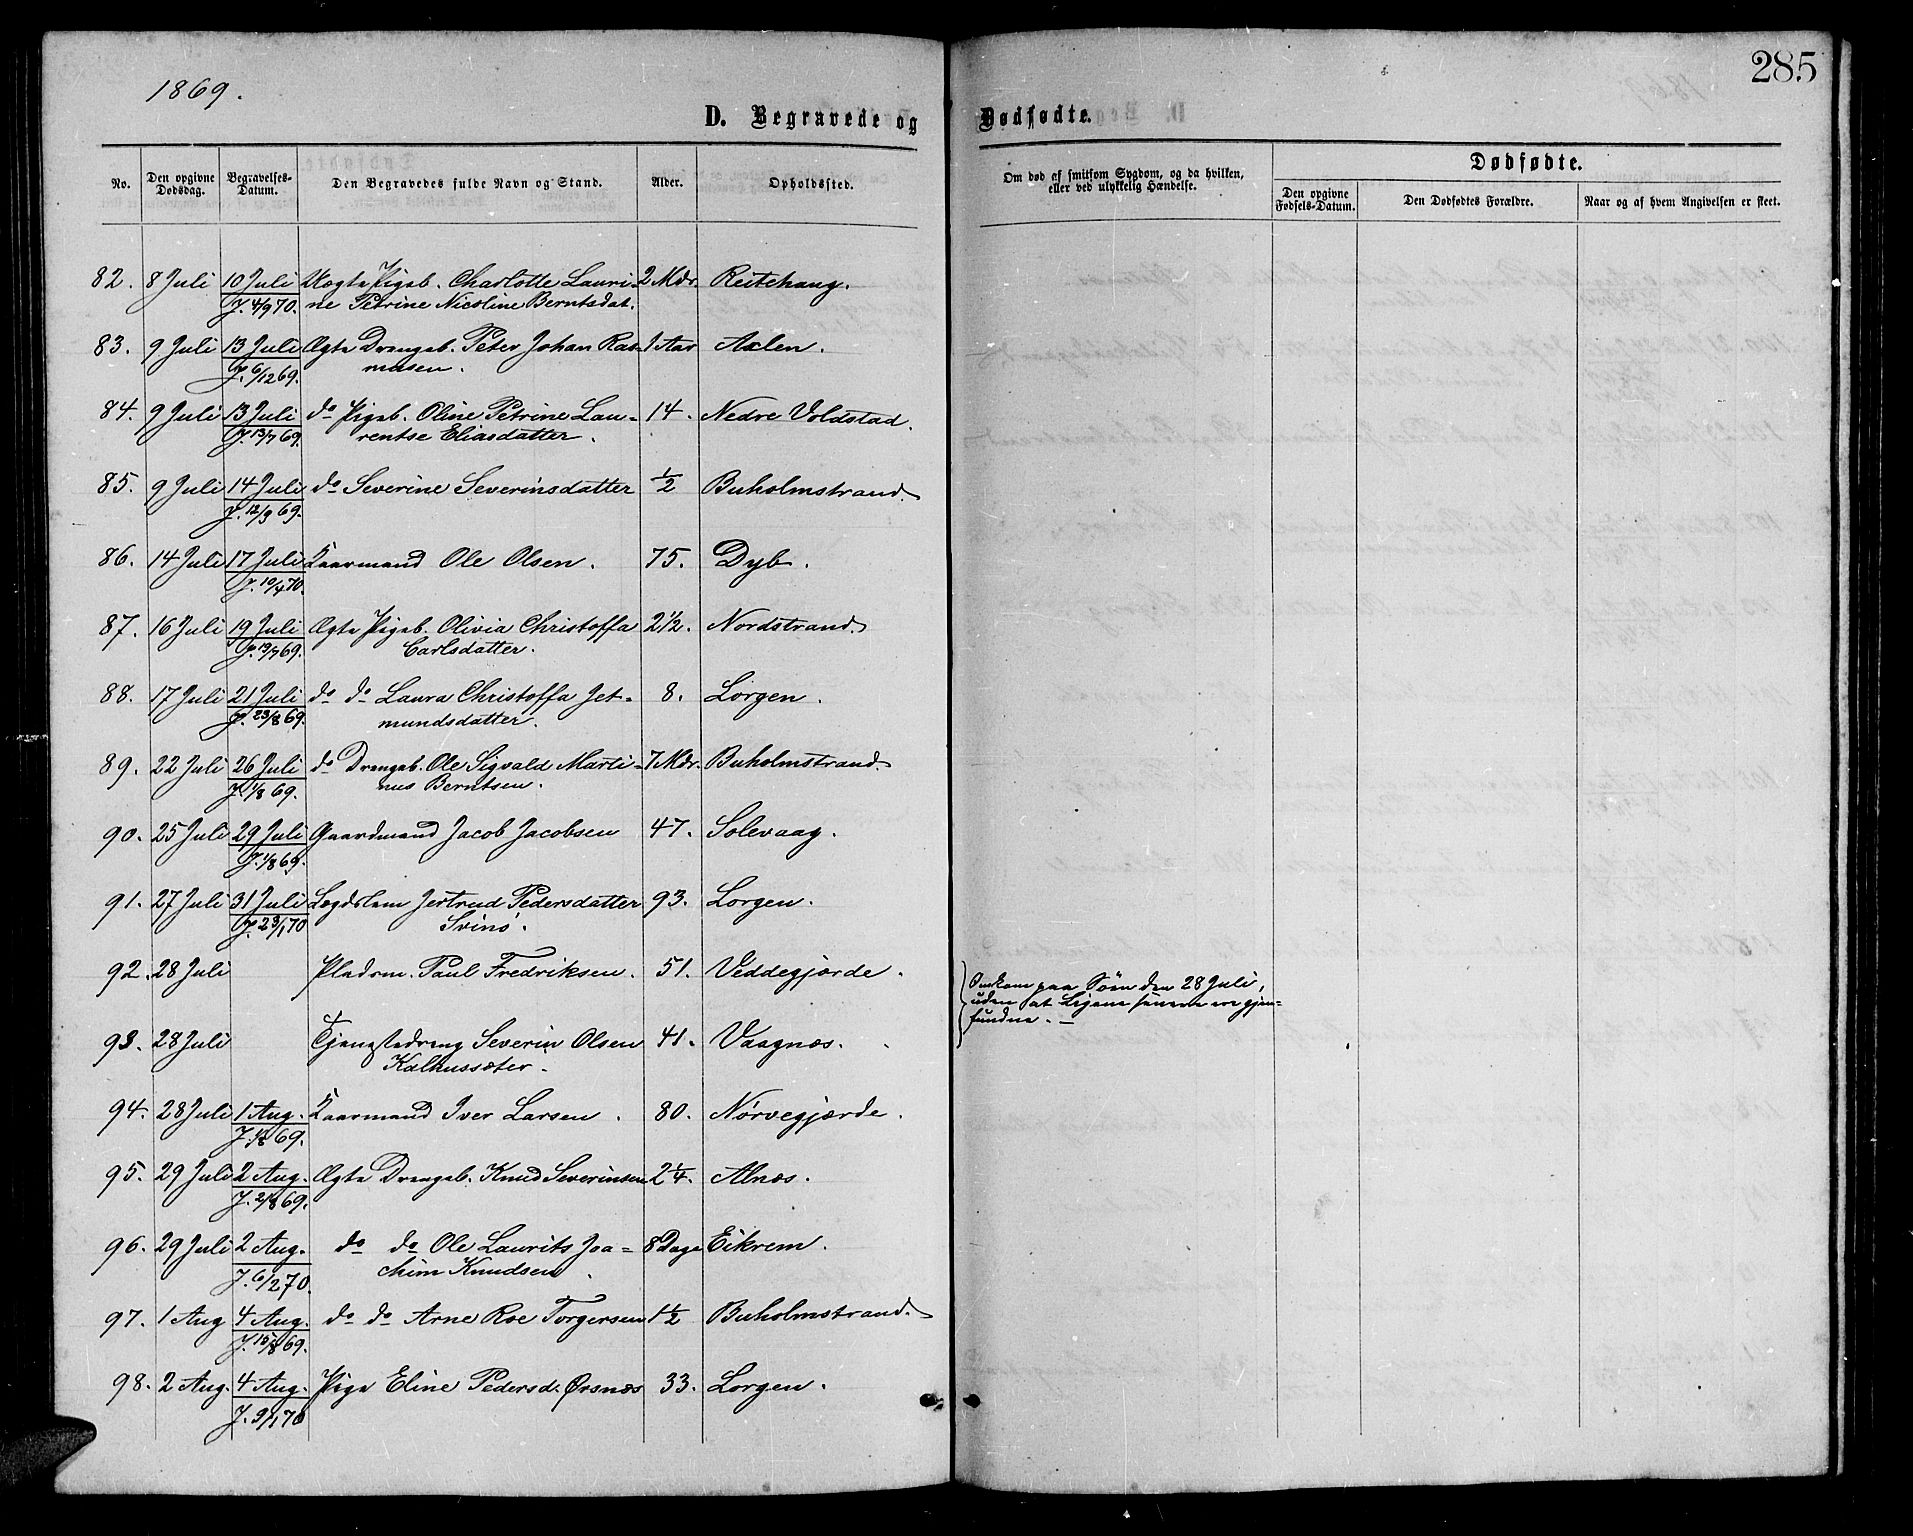 1869.
285
D. Begravede og Dødfødte.
No. Den opgivne Dødsdag. Begravelses-Datum. Den Begravedes fulde Navn og Stand. Alder. Opholdssted. Om død af smitsom Sygdom, og da hvilken, eller ved ulykkelig Hændelse. Dødfødte. Den opgivne Fødsels-Datum. Den Dødfødtes Forældre. Naar og af hvem Angivelsen er skeet.
82. 8 Juli 10 Juli Uægte Pigeb. Charlotte Lauri- 2 Mdr. Reitehaug.
J. 4/9 70. ne Petrine Nicoline Berntsdat.
83. 9 Juli 13 Juli Ægte Drengeb. Peter Johan Ras- 1 Aar Axlen.
J. 6/12 69. musen.
84. 9 Juli 13 Juli do Pigeb. Oline Petrine Lau- 14. Nedre Voldstad.
J. 13/7 69. rentse Eliasdatter.
85. 9 Juli 14 Juli do Severine Severinsdatter 1/2 Buholmstrand.
J. 12/9 69.
86. 14 Juli 17 Juli Kaarmand Ole Olsen. 75. Dyb.
J. 10/4 70.
87. 16 Juli 19 Juli Ægte Pigeb. Olivia Christoffa 2 1/2. Nordstrand.
J. 19/7 69. Carlsdatter.
88. 17 Juli 21 Juli do do Laura Christoffa Jet- 8. Lorgen.
J. 23/8 69. mundsdatter.
89. 22 Juli 26 Juli do Drengeb. Ole Sigvald Marti- 7 Mdr. Buholmstrand.
J. 1/8 69. nus Berntsen.
90. 25 Juli 29 Juli Gaardmand Jacob Jacobsen 47. Solevaag.
J. 1/8 69.
91. 27 Juli 31 Juli Lægdslem Jertrud Pedersdatter 93. Lorgen.
J. 23/1 70 Svinö.
92. 28 Juli Pladsm. Paul Fredriksen. 51. Veddegjærde.
Omkom paa Söen den 28 Juli,
uden at Ligene senere ere gjen-
fundne. —
93. 28 Juli Tjenestedreng Severin Olsen 41. Vaagnæs.
Kalhussæter.
94. 28 Juli 1 Aug. Kaarmand Iver Larsen. 80. Nörvegjærde.
J. 1/8 69.
95. 29 Juli 2 Aug. Ægte Drengeb. Knud Severinsen 2 1/4. Alnæs.
J. 2/8 69.
96. 29 Juli 2 Aug. do do Ole Laurits Joa- 8 Dage Eikrem.
J. 6/2 70. chim Knudsen.
97. 1 Aug 4 Aug. do do Arne Roe Torgersen 1 1/2 Buholmstrand.
J. 15/8 69.
98. 2 Aug. 4 Aug. Pige Eline Pedersd. Ørsnæs 33. Lorgen.
J. 9/1 70